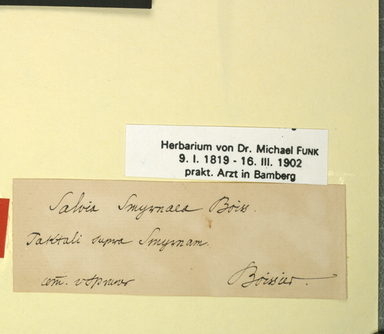 Herbarium von Dr. Michael FUNK
9. I. 1819 - 16. III. 1902
prakt. Arzt in Bamberg
Salvia Smyrnaea Boiss.
Takhtali supra Smyrnam.
com. v Spruner Boissier.